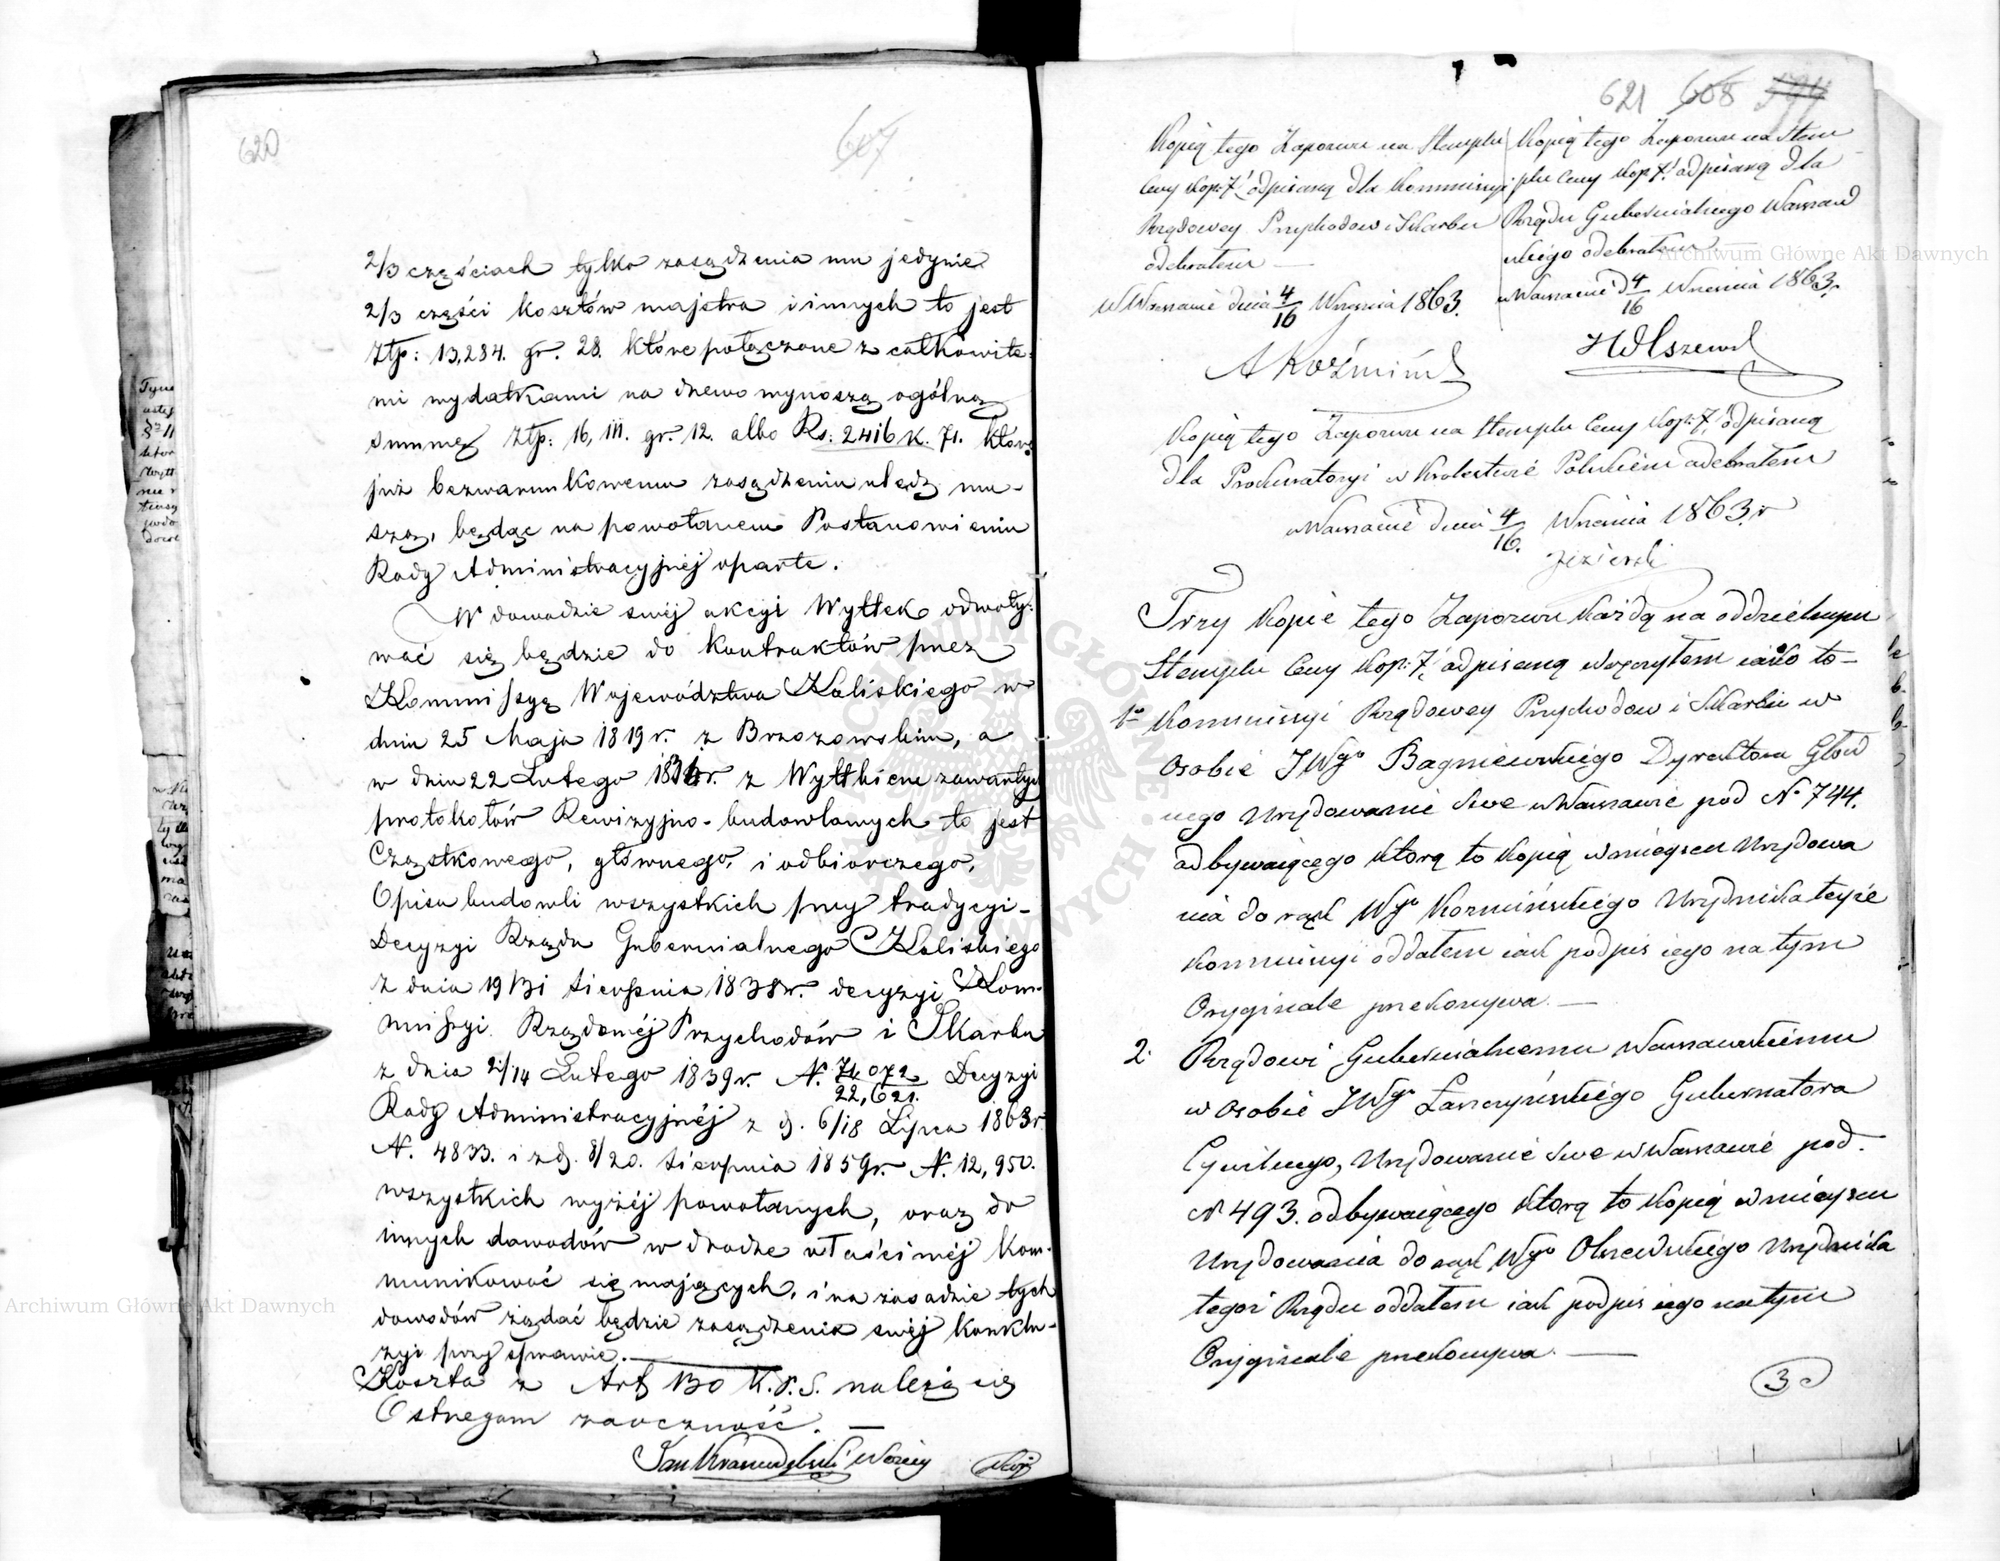 620
607
2/3 częściach tylko zasądzenia mu jedynie
2/3 części kosztów majstra i innych to jest
Złp: 13,284. gr. 28. które połączone z całkowite-
mi wydatkami na drzewo wynoszą ogólną
summę Złp: 16,111. gr. 12. albo Rs: 2416 k. 71. które
już bezwarunkowemu zasądzeniu uledz mu-
szą, będąc na powołanem Postanowieniu
Rady Administracyjnéj oparte.
W dowodzie swéj akcyi Wyttek odwoły-
wać się będzie do kontraktów przez
Kommissyą Województwa Kaliskiego w
dniu 25 Maja 1819 r. z Brzozowskim, a
w dniu 22 Lutego r. z Wyttkiem zawartych
protokołów Rewizyjno-budowlanych to jest
Cząstkowego, głównego, i odbiorczego,
Opisu budowli wszystkich przy tradycyi-
Decyzyi Rządu Gubernialnego Kaliskiego
z dnia 19/31 Sierpnia 1838 r. decyzyi Kom-
missyi Rządowéj Przychodów i Skarbu
z dnia 2/14 Lutego 1839 r. N. 74,072/22,621. Decyzyi
Rady Administracyjnéj z d. 6/18 Lipca 1863 r.
N. 4833. i z d. 8/20. Sierpnia 1859 r. N. 12,950.
wszystkich wyżéj powołanych, oraz do
innych dowodów w drodze właściwéj kom-
munikować się mających, i na zasadzie tych
dowodów żądać będzie zasądzenia swéj konklu-
zyi przy sprawie.
Koszta z Art 130 K.P.S. należą się
Ostrzegam zaoczność.
Jan Woźny
621 608 594
Kopią tego Zapozwu na Stemplu
Ceny kop: 7½ odpisaną dla Kommissyi
Rządowey Przychodow i Skarbu
odebrałem
w Warszawie dnia 4/16 Września 1863.
A Koźmiński
Kopią tego Zapozwu na Stem-
plu Ceny kop 7½ odpisaną dla
Rządu Gubernialnego Warszaw
skiego odebrałem
w Warszawie d 4/16 Września 1863 r.
H Olszewski
Kopią tego Zapozwu na stemplu Ceny Kop: 7½ odpisaną
dla Prokuratoryi w Krolestwie Polskiem odebrałem
w Warszawie dnia 4/16. Września 1863 r
Jezierski
Trzy Kopie tego Zapozwu każdą na oddzielnym
Stemplu Ceny Kop: 7½ odpisaną wręczyłem iako to-
1o Kommissyi Rządowey Przychodow i Skarbu w
osobie JWgo Bagniewskiego Dyrektora Głow
nego Urzędowanie swe w Warszawie pod No 744.
odbywaiącego ktorą to kopią w mieyscu Urzędowa
nia do rąk Wgo Kozmińskiego Urzędnika teyże
Kommissyi oddałem iak podpis iego na tym
Oryginale przekonywa.
2. Rządowi Gubernialnemu Warszawskiemu
w osobie JWgo Łaszczyńskiego Gubernatora
Cywilnego, Urzędowanie swe w Warszawie pod.
N 493. odbywaiącego ktorą to kopią w mieyscu
Urzędowania do rąk Wgo Olszewskiego Urzędnika
tegoż Rządu oddałem iak podpis iego na tym
Oryginale przekonywa.
3
Archiwum Główne Akt Dawnych
Archiwum Główne Akt Dawnych